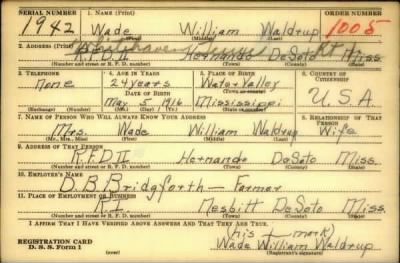 SERIAL NUMBER 1. NAME (Print) ORDER NUMBER
1942 Wade William Waldrup 1005
2. ADDRESS (Print)
R.F.D. II Hernando DeSoto Miss.
(Number and street or R. F. D. number) (Town) (County) (State)
3. TELEPHONE 4. AGE IN YEARS 5. PLACE OF BIRTH 6. COUNTRY OF CITIZENSHIP
None 24 years Water Valley
DATE OF BIRTH (Town or county) U.S.A.
May 5 1916 Mississippi
(Exchange) (Number) (Mo.) (Day) (Yr.) (State or country)
7. NAME OF PERSON WHO WILL ALWAYS KNOW YOUR ADDRESS 8. RELATIONSHIP OF THAT PERSON
Mrs. Wade William Waldrup Wife
(Mr., Mrs., Miss) (First) (Middle) (Last)
9. ADDRESS OF THAT PERSON
R.F.D. II Hernando DeSoto Miss.
(Number and street or R. F. D. number) (Town) (County) (State)
10. EMPLOYER'S NAME
D.B. Bridgforth — Farmer
11. PLACE OF EMPLOYMENT OR BUSINESS
R.I. Nesbitt DeSoto Miss.
(Number and street or R. F. D. number) (Town) (County) (State)
I AFFIRM THAT I HAVE VERIFIED ABOVE ANSWERS AND THAT THEY ARE TRUE.
(his + mark)
REGISTRATION CARD Wade William Waldrup
D. S. S. Form 1 (Registrant's signature)